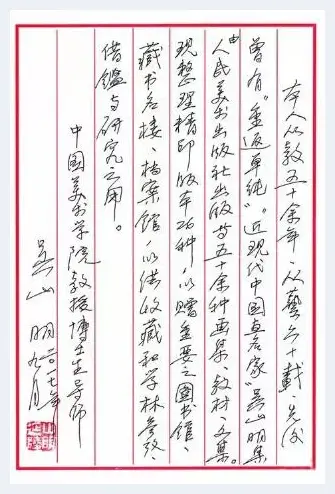 本人从教五十余年，从藝六十載，先后
曾有"重返单纯"。近现代中国画名家"吴山明集
由人民美术出版社出版等五十余种画集、教材、文集。
现整理精印版本26种，以赠重要之图书馆、
藏书名楼、档案馆，以供收藏和学林参改、
借鑑与研究之用。
中國美术学院教授博士生导师
吴山明 二〇一七年九月